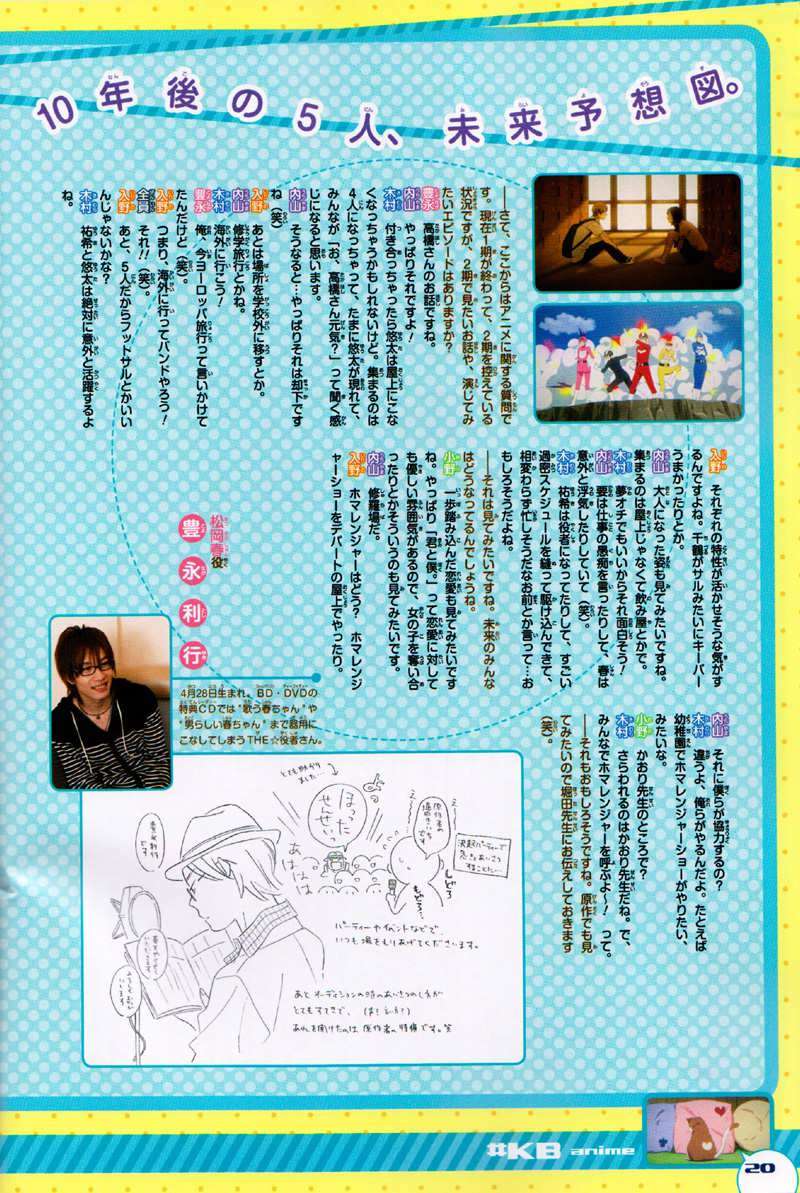 10年後の5人、未来予想図。
――さて、ここからはアニメに関する質問で
す。現在1期が終わって、2期を控えている
状況ですが、2期で見たいお話や、演じてみ
たいエピソードはありますか?
豊永 高橋さんのお話ですね。
内山 やっぱりそれですよ!
木村 付き合っちゃったら悠太は屋上にこな
くなっちゃうかもしれないけど。集まるのは
4人になっちゃって、たまに悠太が現れて、
みんなが「お、高橋さん元気?」って聞く感
じになると思います。
内山 そうなると…やっぱりそれは却下です
ね(笑)
入野 あとは場所を学校外に移すとか。
内山 修学旅行とかね。
木村 海外に行こう!
豊永 俺、今ヨーロッパ旅行って言いかけて
たんだけど(笑)。
入野 つまり、海外に行ってバンドやろう!
全員 それ!(笑)。
入野 あと、5人だからフットサルとかいい
んじゃないかな?
木村 祐希と悠太は絶対に意外と活躍するよ
ね。
入野 それぞれの特性が活かせそうな気がす
るんですよね。千鶴がサルみたいにキーパー
うまかったりとか。
内山 大人になった姿も見てみたいですね。
集まるのは屋上じゃなくて飲み屋とかで。
木村 夢オチでもいいからそれ面白そう!
内山 要は仕事の愚痴を言ったりして、春は
意外と浮気したりしていて(笑)。
木村 祐希は役者になってたりして、すごい
過密スケジュールを縫って駆け込んできて、
相変わらず忙しそうだなお前とか言って…お
もしろそうだよね。
――それは見てみたいですね。未来のみんな
はどうなってるんでしょうね。
小野 一歩踏み込んだ恋愛も見てみたいです
ね。やっぱり『君と僕。』って恋愛に対して
も優しい雰囲気があるので、女の子を奪い合
ったりとかそういうのも見てみたいです。
内山 修羅場だ。
入野 ホマレンジャーはどう? ホマレンジ
ャーショーをデパートの屋上でやったり。
内山 それに僕らが協力するの?
木村 違うよ、俺らがやるんだよ。たとえば
幼稚園でホマレンジャーショーがやりたい、
みたいな。
小野 かおり先生のところで?
木村 さらわれるのはかおり先生だね。で、
みんなでホマレンジャーを呼ぶよ〜! って。
――それもおもしろそうですね。原作でも見
てみたいので堀田先生にお伝えしておきます
(笑)。
松岡春役
豊永利行
4月28日生まれ。BD・DVDの
特典CDでは“歌う春ちゃん”や
“男らしい春ちゃん”まで器用に
こなしてしまうTHE☆役者さん。
とても助かりました…
ほったせんせいっ
あはははは
しどろ
もどろ…
パーティーやイベントなどで
いつも場をもりあげてくださいます。
あとオーディションの時のあいさつのしかたが
とてもすてきで、
あれを聞けたのは原作者の特権です。笑
#KB anime
20